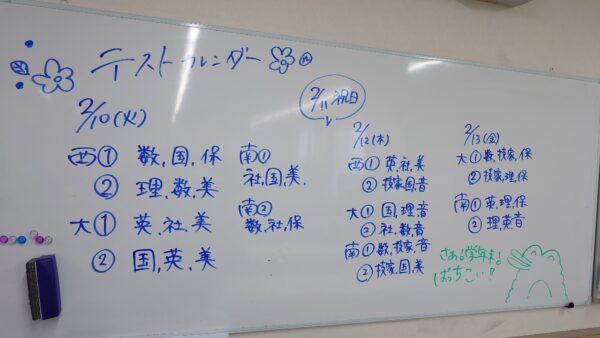 テストカレンダー
2/10(火)
西① 数,国,保
② 理,数,美
大① 英,社,美
② 国,英,美
南①
社,国,美.
南②
数,社,保
2/11 祝日
2/12(木)
西① 英,社,美
② 技家,国,音
大① 国,理,音
② 社,数,音
南① 数,技家,音
② 技家,国,美
2/13(金)
大① 数,技家,保
② 技家,理,保
南① 英,理,保
② 理,英,音
さぁ学年末!
ばっちこい!